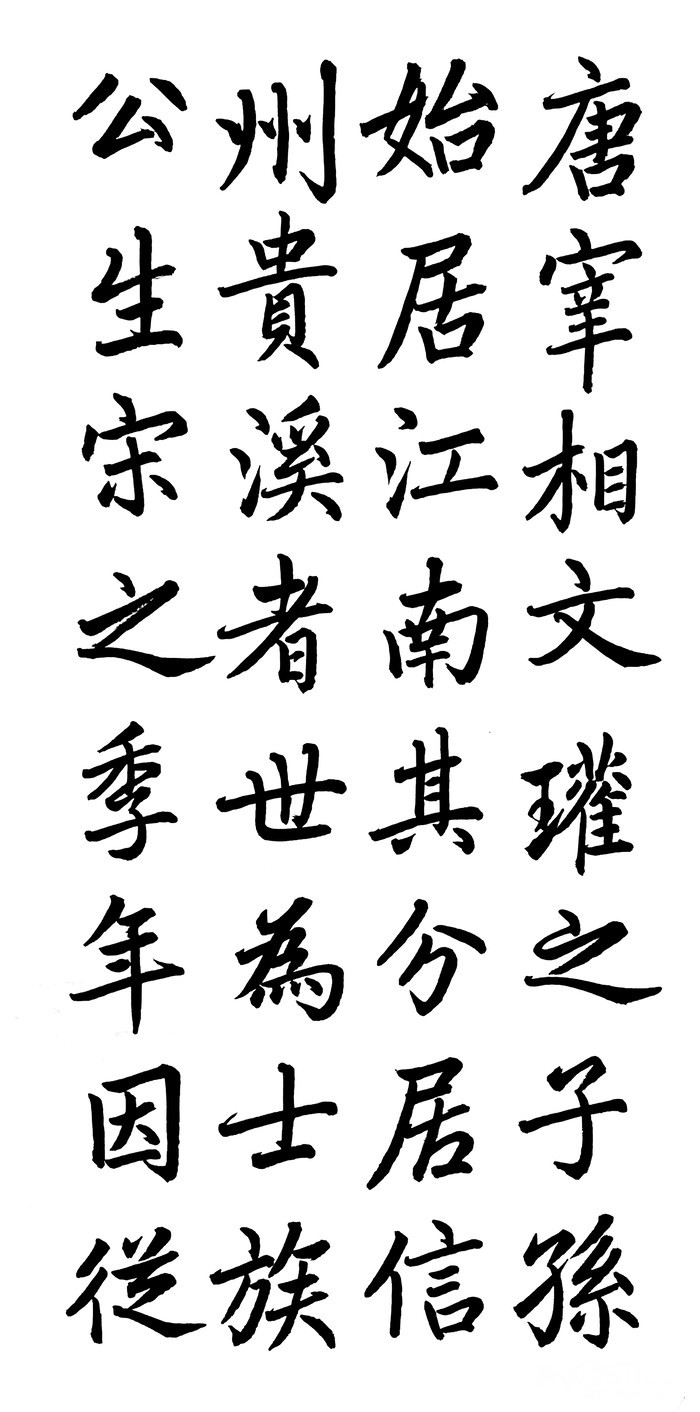 唐宰相文瓘之子孫
始居江南其分居信
州貴溪者世為士族
公生宋之季年因從